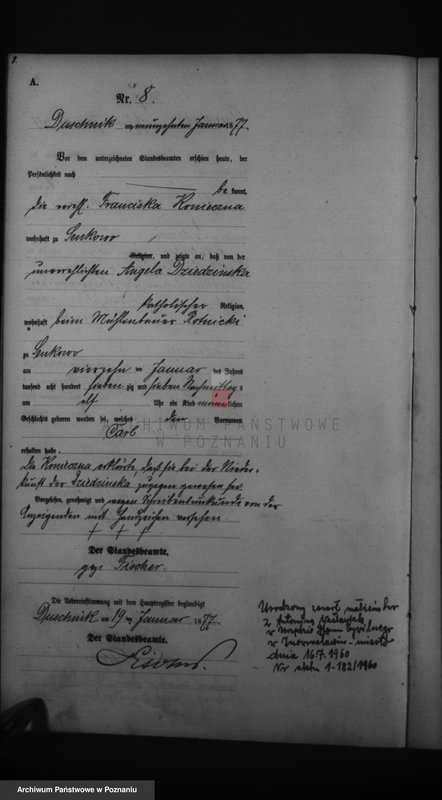 A.
Nr. 8.
Duschnik am neunzehnten Januar 1877.
Vor dem unterzeichneten Standesbeamten erschien heute, der
Persönlichkeit nach
be kannt,
die verehl. Franciska Konieczna
wohnhaft zu Senkowo
Religion, und zeigte an, daß von der
unverehlichten Angela Dziedzinska
katholischer Religion,
wohnhaft beim Mühlenbauer Rotnicki
zu Senkowo
am vierzehn ten Januar des Jahres
tausend acht hundert sieben zig und sieben Nachmittag s
um elf Uhr ein Kind männlichen
Geschlechts geboren worden sei, welches den Vornamen
Carl
erhalten habe.
Die Konieczna erklärte, daß sie bei der Nieder-
kunft der Dziedzinska zugegen gewesen sei.
Vorgelesen, genehmigt und wegen Schreibensunkunde von der
Anzeigenden mit Handzeichen versehen.
+ + +
Der Standesbeamte.
gez. Fischer.
Die Uebereinstimmung mit dem Hauptregister beglaubigt
Duschnik am 19 ten Januar 1877.
Der Standesbeamte.
dnia 16.7. 1960
Nr aktu 1-182/1960
ARCHIWUM PAŃSTWOWE
W POZNANIU
Archiwum Państwowe w Poznaniu